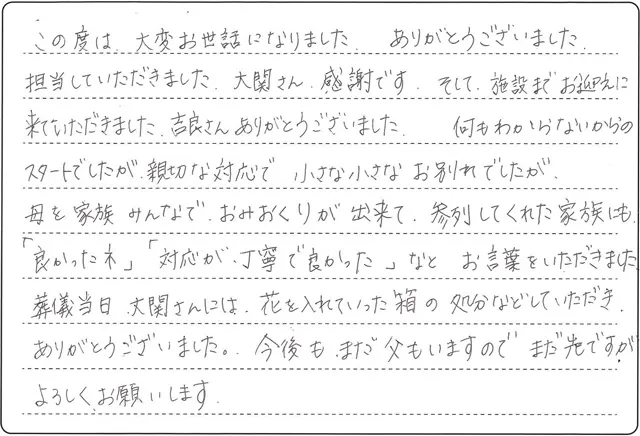 この度は、大変お世話になりました。 ありがとうございました。
担当していただきました、大関さん、感謝です。 そして、施設までお迎えに
来ていただきました、吉良さんありがとうございました。 何もわからないからの
スタートでしたが、親切な対応で 小さな小さな お別れでしたが、
母を 家族 みんなで、おみおくりが 出来て、参列してくれた家族にも、
「良かったネ」「対応が、丁寧で良かった」など お言葉をいただきました
葬儀当日 大関さんには、花を入れていった箱の 処分などしていただき、
ありがとうございました。 今後も まだ 父もいますので まだ先ですが、
よろしくお願いします。